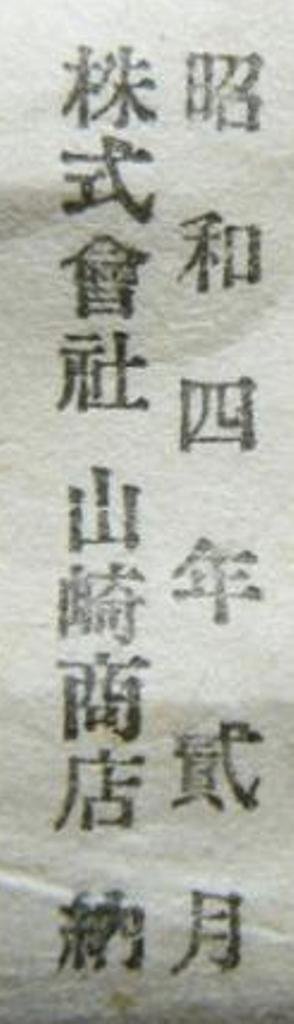 昭和四年貳月
株式會社 山崎商店 納